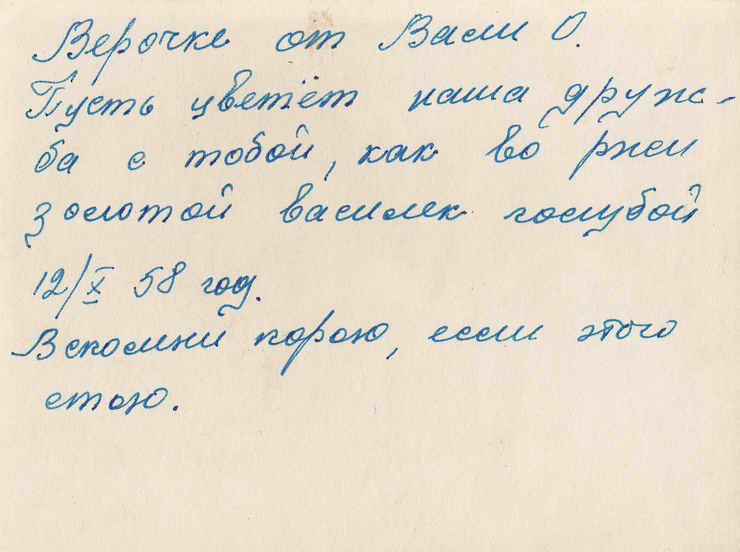 Верочке от Васи О.
Пусть цветёт наша друж-
ба с тобой, как во ржи
золотой василек голубой
12/X 58 год.
Вспомни порою, если этого
стою.